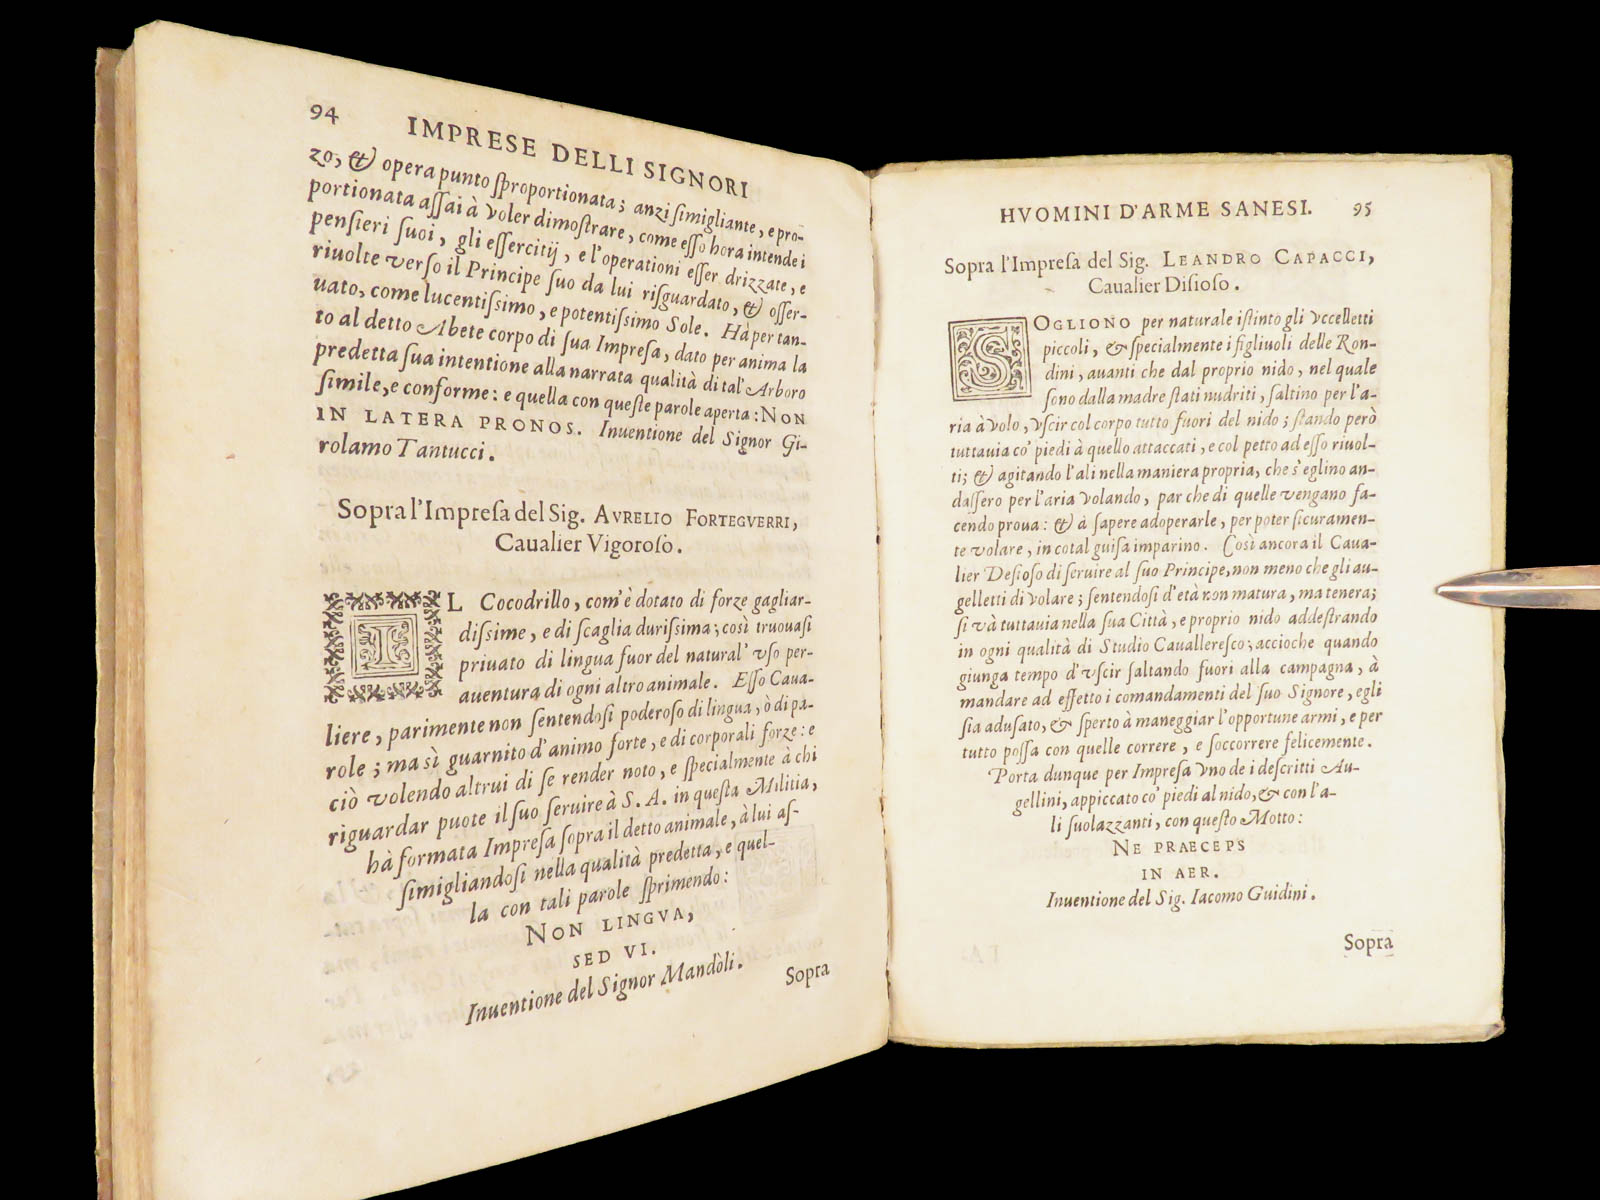 94 IMPRESE DELLI SIGNORI
zo; & opera punto ſproportionata; anzi ſimigliante, e pro-
portionata aſſai à voler dimoſtrare, come eſſo hora intende i
penſieri ſuoi, gli eſſercitij, e l'operationi eſſer drizzate, e
riuolte verſo il Principe ſuo da lui riſguardato, & oſſer-
uato, come lucentiſsimo, e potentiſsimo Sole. Hà per tan-
to al detto Abete corpo di ſua Impreſa, dato per anima la
predetta ſua intentione alla narrata qualità di tal' Arboro
ſimile, e conforme: e quella con queſte parole aperta: NON
IN LATERA PRONOS. Inuentione del Signor Gi-
rolamo Tantucci.
Sopra l'Impreſa del Sig. AVRELIO FORTEGVERRI,
Caualier Vigoroſo.
IL Cocodrillo, com'è dotato di forze gagliar-
diſsime, e di ſcaglia duriſsima; così truouaſi
priuato di lingua fuor del natural' vſo per-
auentura di ogni altro animale. Eſſo Caua-
liere, parimente non ſentendoſi poderoſo di lingua, ò di pa-
role; ma sì guarnito d'animo forte, e di corporali forze: e
ciò volendo altrui di ſe render noto, e ſpecialmente à chi
riguardar puote il ſuo ſeruire à S. A. in queſta Militia,
hà formata Impreſa ſopra il detto animale, à lui aſ-
ſimigliandoſi nella qualità predetta, e quel-
la con tali parole ſprimendo:
NON LINGVA,
SED VI.
Inuentione del Signor Mandòli.
Sopra
HVOMINI D'ARME SANESI. 95
Sopra l'Impreſa del Sig. LEANDRO CAPACCI,
Caualier Diſioſo.
SOGLIONO per naturale iſtinto gli vccelletti
piccoli, & ſpecialmente i figliuoli delle Ron-
dini, auanti che dal proprio nido, nel quale
ſono dalla madre ſtati nudriti, ſaltino per l'a-
ria à volo, vſcir col corpo tutto fuori del nido; ſtando però
tuttauia co' piedi à quello attaccati, e col petto ad eſſo riuol-
ti; & agitando l'ali nella maniera propria, che s'eglino an-
daſſero per l'aria volando, par che di quelle vengano fa-
cendo proua: & à ſapere adoperarle, per poter ſicuramen-
te volare, in cotal guiſa imparino. Così ancora il Caua-
lier Deſioſo di ſeruire al ſuo Principe, non meno che gli au-
gelletti di volare; ſentendoſi d'età non matura, ma tenera;
ſi và tuttauia nella ſua Città, e proprio nido addeſtrando
in ogni qualità di Studio Caualleresco; acciòche quando
giunga tempo d'vſcir ſaltando fuori alla campagna, à
mandare ad effetto i comandamenti del ſuo Signore, egli
ſia aduſato, & ſperto à maneggiar l'opportune armi, e per
tutto poſſa con quelle correre, e ſoccorrere felicemente.
Porta dunque per Impreſa vno de i deſcritti Au-
gellini, appiccato co' piedi al nido, & con l'a-
li ſuolazzanti, con queſto Motto:
NE PRAECEPS
IN AER.
Inuentione del Sig. Iacomo Guidini.
Sopra